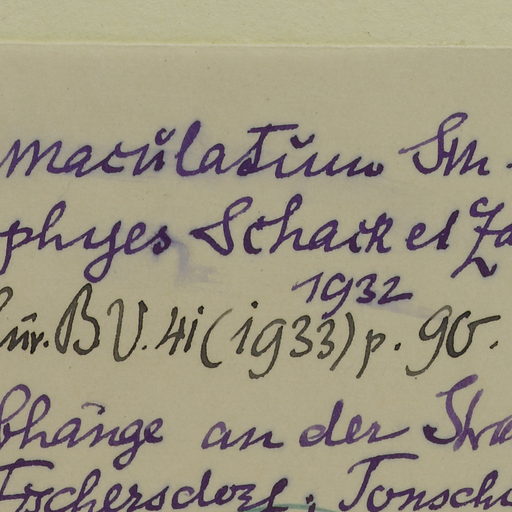 maculatum Sm.
phyes Schack et Za
1932
ür. BV. 41 (1933) p. 90.
bhänge an der Stra
Fischersdorf; Tonsch